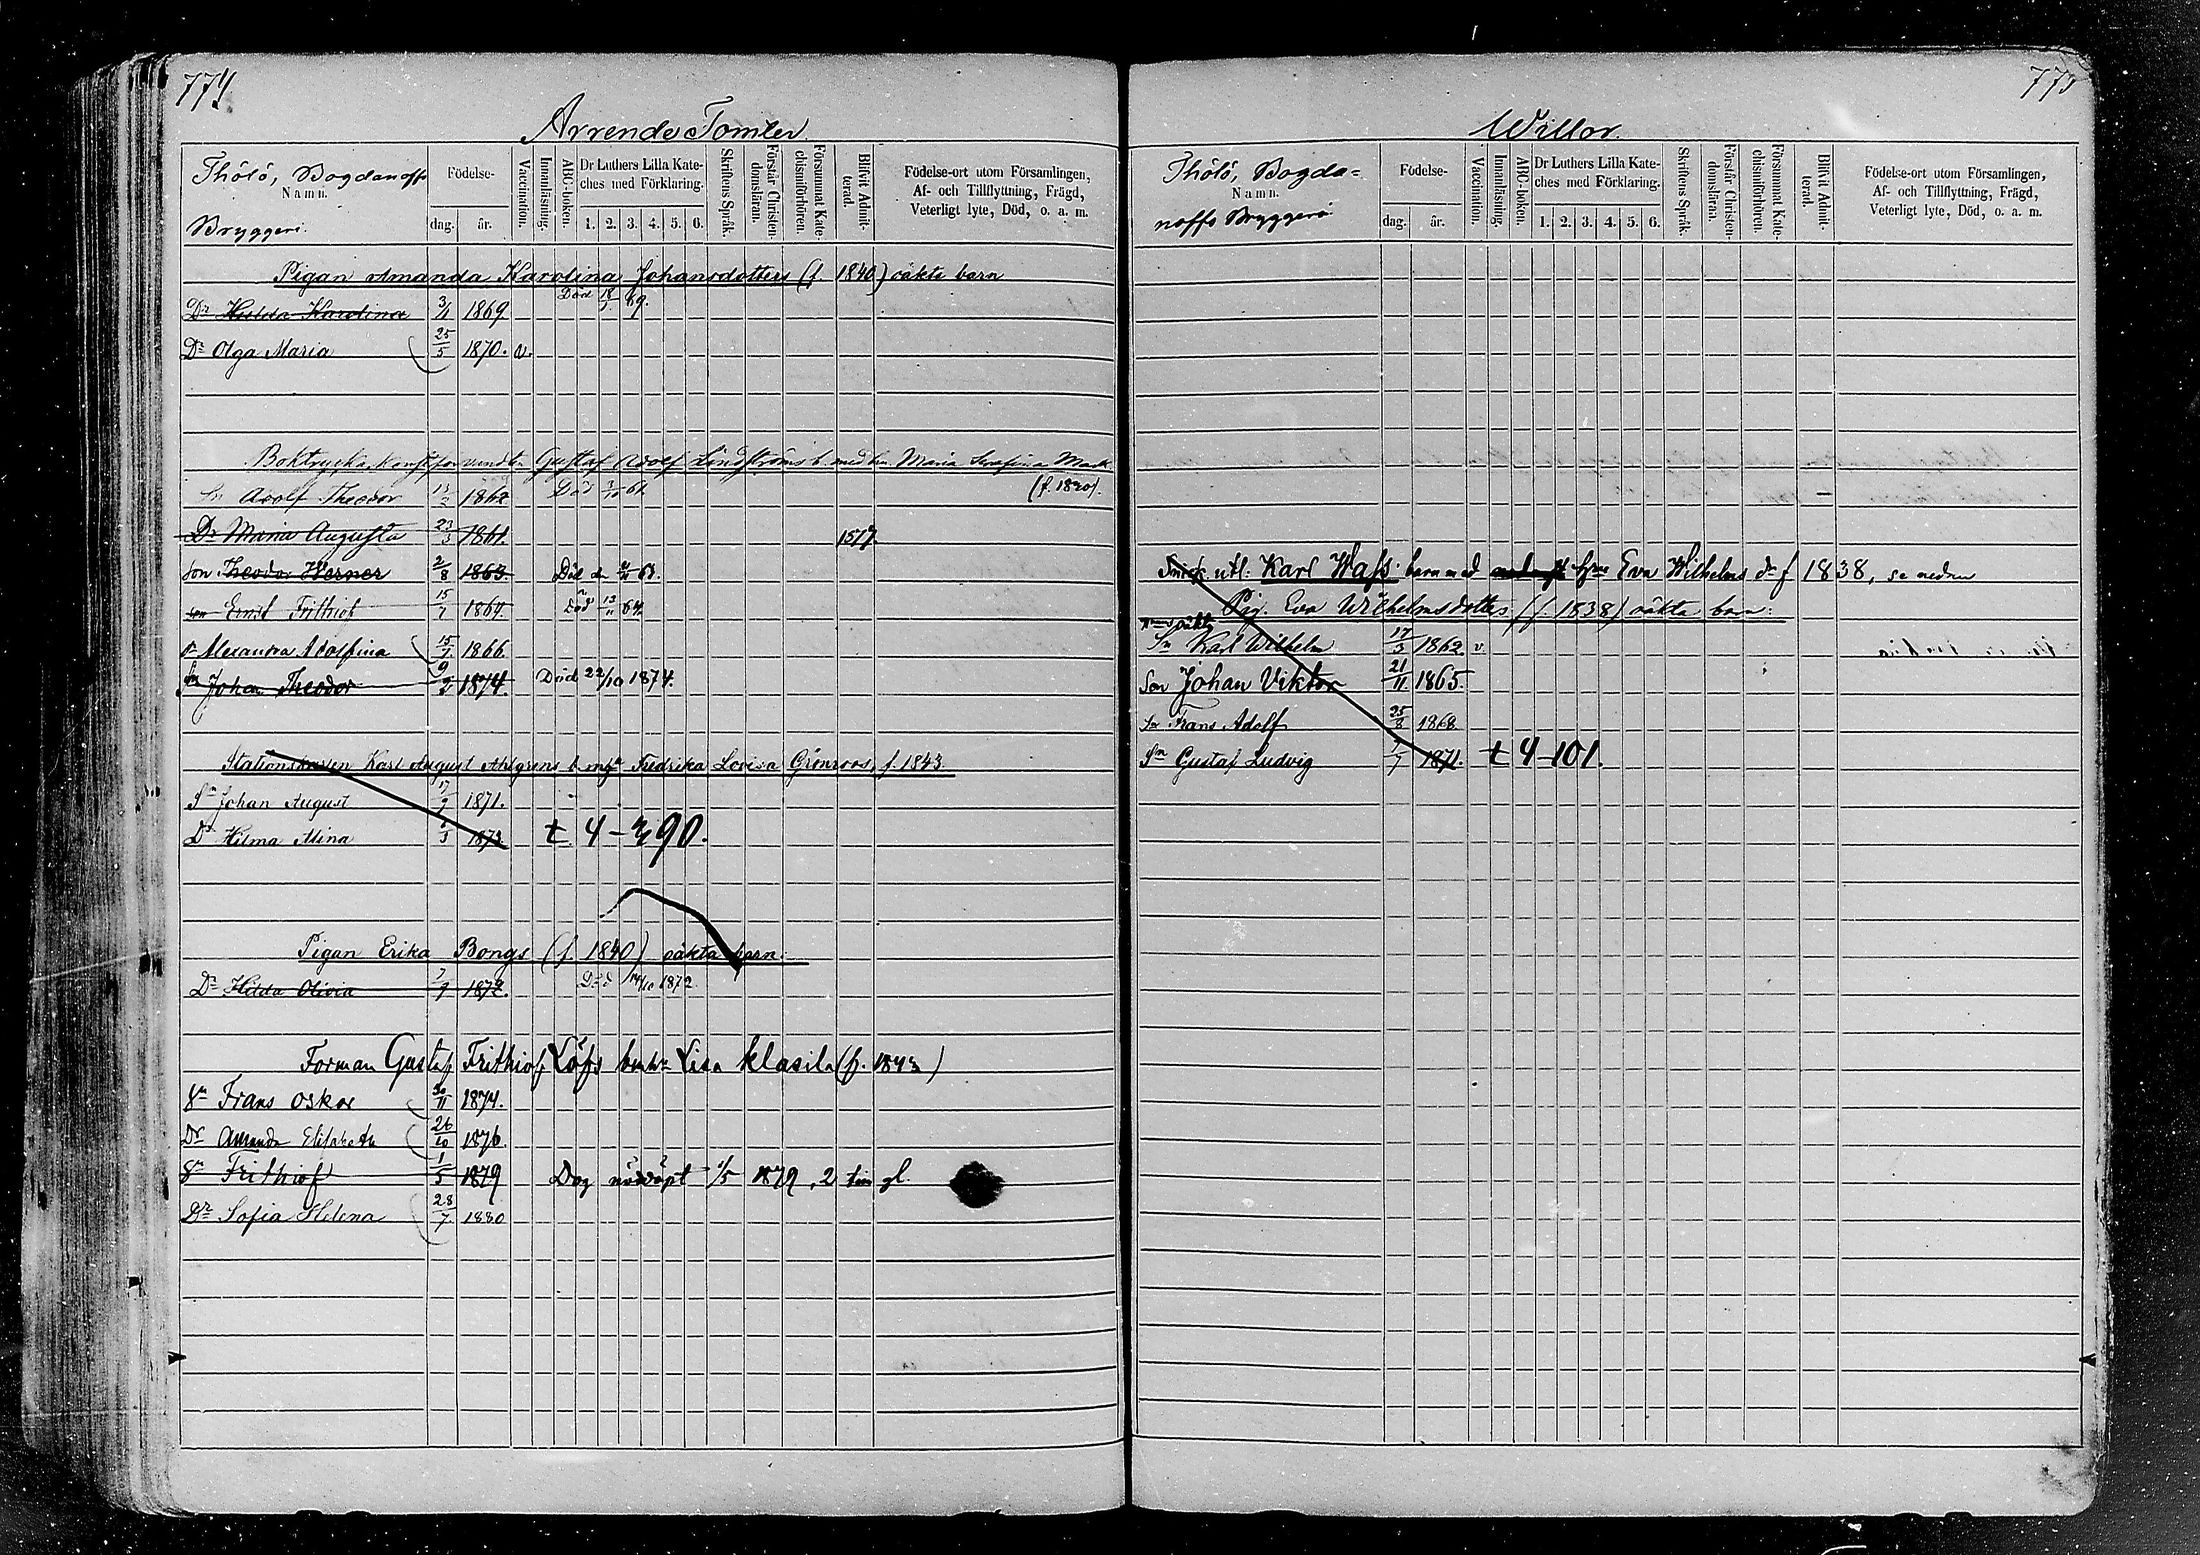 774
Arrende Tomter
Thölö, Bogdanoffs
Namn.
Bryggeri.
Födelse-
dag. år.
Vaccination.
Innanläsning.
ABC-boken.
Dr Luthers Lilla Kate-
ches med Förklaring.
1. 2. 3. 4. 5. 6.
Skriftens Språk.
Förstår Christen-
domsläran.
Försummat Kate-
chismiförhören.
Blifvit Admit-
terad.
Födelse-ort utom Församlingen,
Af- och Tillflyttning, Frägd,
Veterligt lyte, Död, o. a. m.
Pigan Amanda Karolina Johansdotters (f. 1840) oäkta barn
Dr Hulda Karolina 3/1 1869 Död 69.
Dr Olga Maria 25/5 1870. v.
Gustaf Adolf Lindströms b. med hu Maria Serafina
Sn Adolf Theodor 1862 Död
Dr Maria Augusta 23/3 1861.
son Theodor Werner 2/8 1863 Död
son Ernst Frithiof 1864. Död
dr Alexandra Adolfina 15/1 1866
Sn Johan Theodor 9/2 1874. Död 22/10 1874.
Karl August Ahlgrens b. m. Fredrika Lovisa Grönroos, f. 1843
Sn Johan August 1871.
Dr Hilma Mina t. 4-390.
Pigan Erika Bongs (f. 1840) oäkta barn.
Dr Hilda Olivia 1872. Död 14/10 1872
Forman Gustaf Frithiof Löfs Lisa Klasila (f. 1843)
Sn Frans Oskar 1874.
Dr Amanda Elisabeth 26/10 1876.
Sn Frithiof 1/5 1879 Dog nöddöpt 1/5 1879, 2 tim gl.
Dr Sofia Helena 28/7 1880
775
Willor.
Thölö, Bogda=
Namn.
noffs Bryggeri
Födelse-
dag. år.
Vaccination.
Innanläsning.
ABC-boken.
Dr Luthers Lilla Kate-
ches med Förklaring.
1. 2. 3. 4. 5. 6.
Skriftens Språk.
Förstår Christen-
domsläran.
Försummat Kate-
chismiförhören.
Blifvit Admit-
terad.
Födelse-ort utom Församlingen,
Af- och Tillflyttning, Frägd,
Veterligt lyte, Död, o. a. m.
Karl Wass barn med Eva Wilhelms dr f 1838, se nedan
Pig. Eva Wilhelmsdotters (f. 1838) oäkta barn:
oäkta
Sn Karl Wilhelm 1862 v.
Son Johan Viktor 21/11 1865.
Sn Frans Adolf 25/8 1868
Sn Gustaf Ludvig 1871. t 4-101.